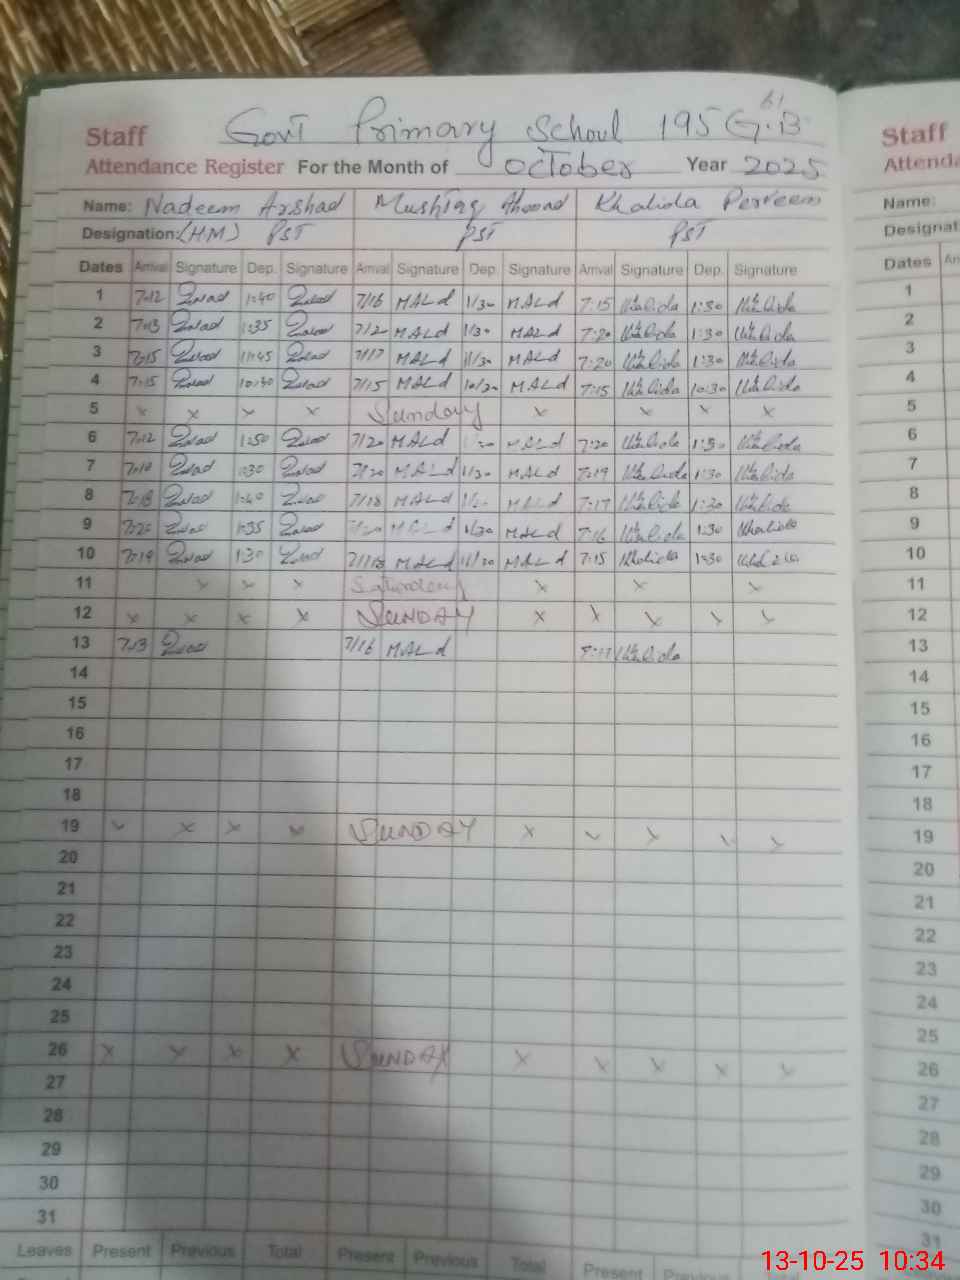 61
Staff Govt Primary School 195 G.B
Attendance Register For the Month of October Year 2025
Name: Nadeem Arshad Mushtaq Ahmad Khalida Perveen
Designation: (HM) PST PST PST
Dates Arrival Signature Dep. Signature Arrival Signature Dep. Signature Arrival Signature Dep. Signature
1 7:12 1:40 7/16 MALd 1/30 MALd 7:15 Khalida 1:30 Khalida
2 7:13 1:35 MALd 1/30 MALd 7:20 Khalida 1:30 Khalida
3 7:15 11:45 7/17 MALd 11/30 MALd 7:20 Khalida 1:30 Khalida
4 7:15 10:30 7/15 MALd 10/30 MALd 7:15 Khalida 10:30 Khalida
5 x x x x Sunday x x x x
6 7:12 1:50 7/20 MALd MALd 7:20 Khalida 1:30 Khalida
7 1:30 7/20 MALd 1/30 MALd 7:19 Khalida 1:30 Khalida
8 7:18 1:40 7/18 MALd MALd 7:17 Khalida 1:30 Khalida
9 7:20 1:35 MALd 1/30 MALd 7:16 Khalida 1:30 Khalida
10 7:19 1:30 MALd MALd 7:15 Khalida 1:30
11 x x x Saturday x x x
12 x x x x SUNDAY x x x x x
13 7:13 7/16 MALd Khalida
14
15
16
17
18
19 x x x x SUNDAY x x x x x
20
21
22
23
24
25
26 x x x x SUNDAY x x x x x
27
28
29
30
31
Leaves Present Previous Total Present Previous Total Present Previous
Staff
Attenda
Name:
Designat
Dates An
1
2
3
4
5
6
7
8
9
10
11
12
13
14
15
16
17
18
19
20
21
22
23
24
25
26
27
28
29
30
31
13-10-25 10:34